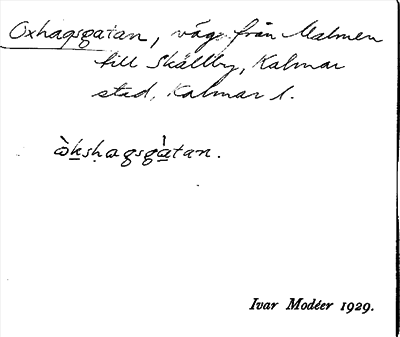 Oxhagsgatan, väg från Malmen
till Skälby, Kalmar
stad, Kalmar l.
ò̀kshagsgàtan.
Ivar Modéer 1929.